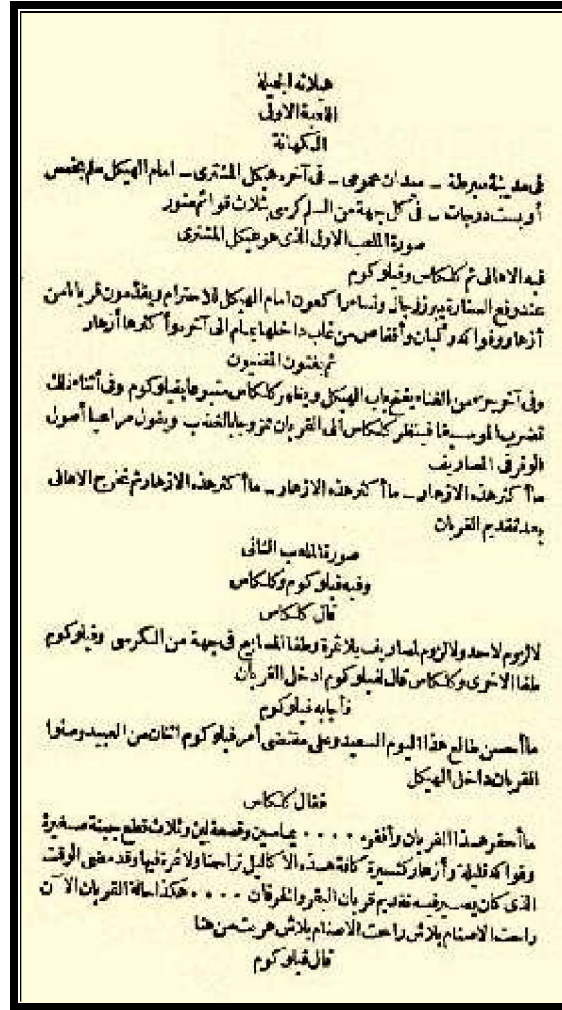 هيلانه الجميلة
اللعبة الاولى
الكهانة
فى مدينة سبرطة ـ ميدان عمومى ـ فى آخره هيكل المشترى ـ امام الهيكل سلم بخمس
أو بست درجات ـ فى كل جهة من السلم كرسى بثلاث قوائم منور
صورة الملعب الاول الذى هو هيكل المشترى
فيه الاهالى ثم كلكاس وفيلوكوم
عند رفع الستارة يبرز رجال ونساء راكعون امام الهيكل للاحترام ويقدّمون قربانا من
أزهار وفواكه و وأقفاص من غاب داخلها يمام الى آخره وأكثرها أزهار
ثم يغنون المغنيون
وفى آخر جزء من الغناء يفتح باب الهيكل ويظهر كلكاس متبوعا بفيلوكوم وفى أثناء ذلك
تضرب الموسيقا فينظر كلكاس الى القربان ممزوجا بالغضب ويقول مراعيا أصول
الوفر فى المصاريف
ما أكثر هذه الازهار ـ ما أكثر هذه الازهار ـ ما أكثر هذه الازهار ثم تخرج الاهالى
بعد تقديم القربان
صورة الملعب الثانى
وفيه فيلوكوم وكلكاس
قال كلكاس
لا لزوم لاحد ولا لزوم لمصاريف بلا ثمرة وطفا المصابيح فى جهة من الكرسى وفيلوكوم
طفا الاخرى وكلكاس قال لفيلوكوم ادخل القربان
فأجابه فيلوكوم
ما أحسن طالع هذا اليوم السعيد وعلى مقتضى أمر فيلوكوم اثنان من العبيد ومنوا
القربان داخل الهيكل
فقال كلكاس
ما أحقر هذا القربان وأفقره . . . . يمامتين وقصعة لبن وثلاث قطع جبنة صغيرة
وفواكه قليلة وأزهار كثيرة كافة هذه الاكاليل تزاحمنا ولا ثمرة فيها وقد مضى الوقت
الذى كان يصير فيه تقديم قربان البقر والخرفان . . . . هكذا حالة القربان الآن
راحت الاصنام بلاش راحت الاصنام بلاش هربت من هنا
قال فيلوكوم